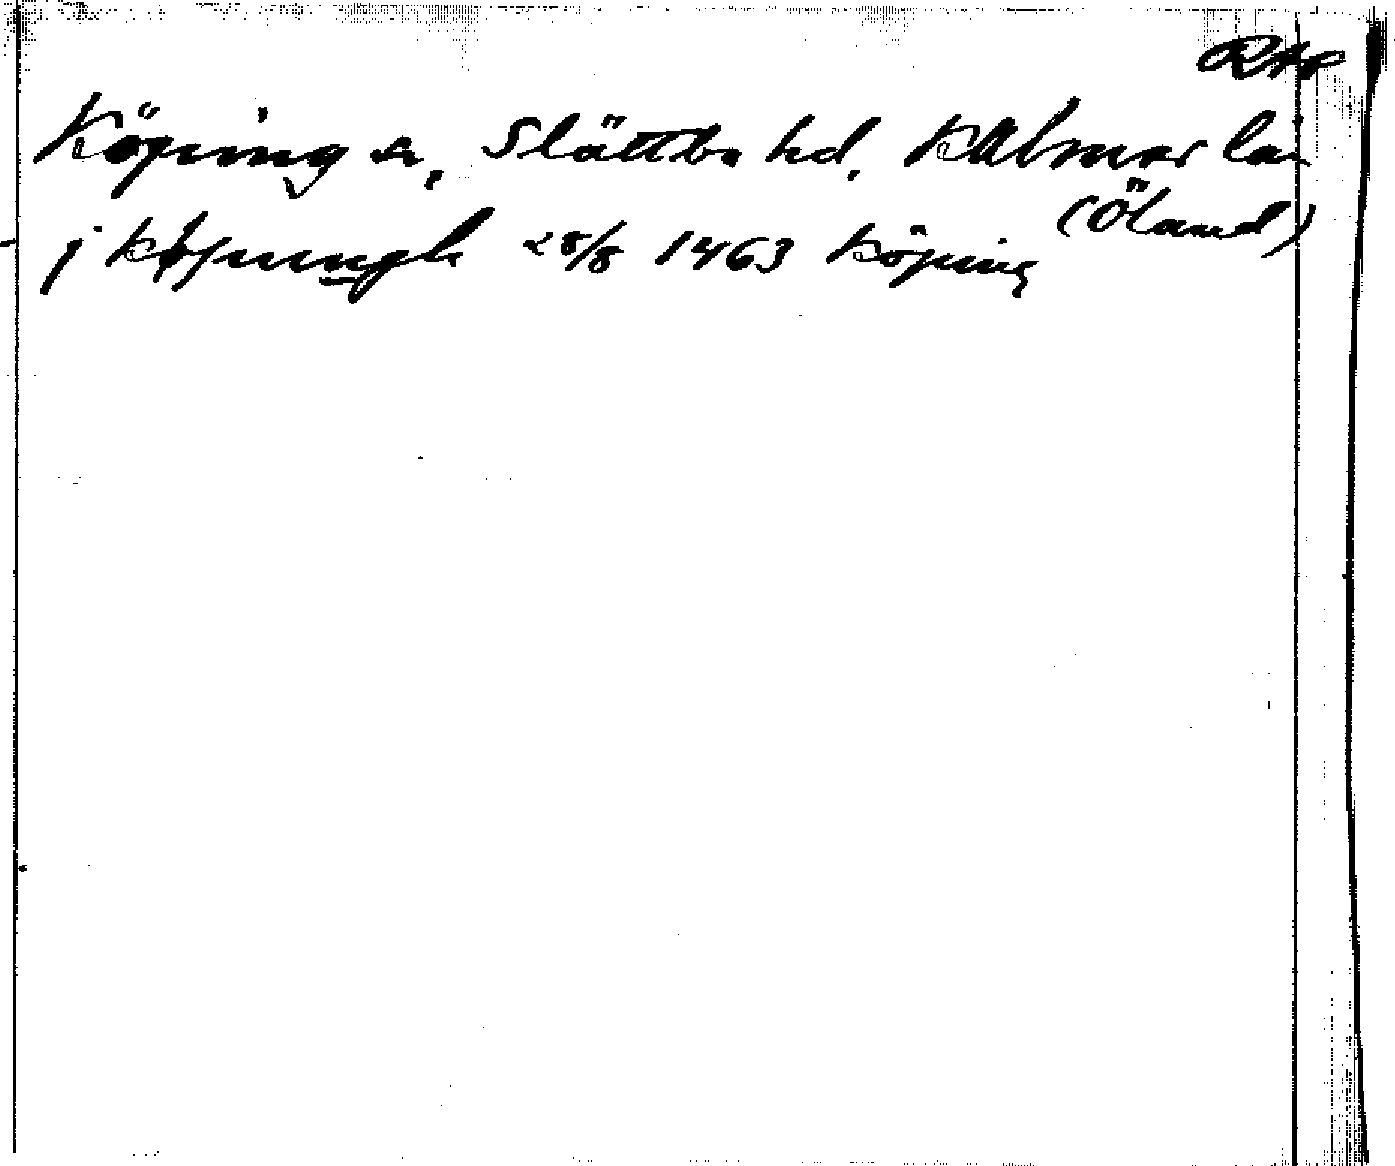 RAP
Köping sn, Slättbo hd, Kalmar län
(Öland)
j køpungh 28/8 1463 Köping